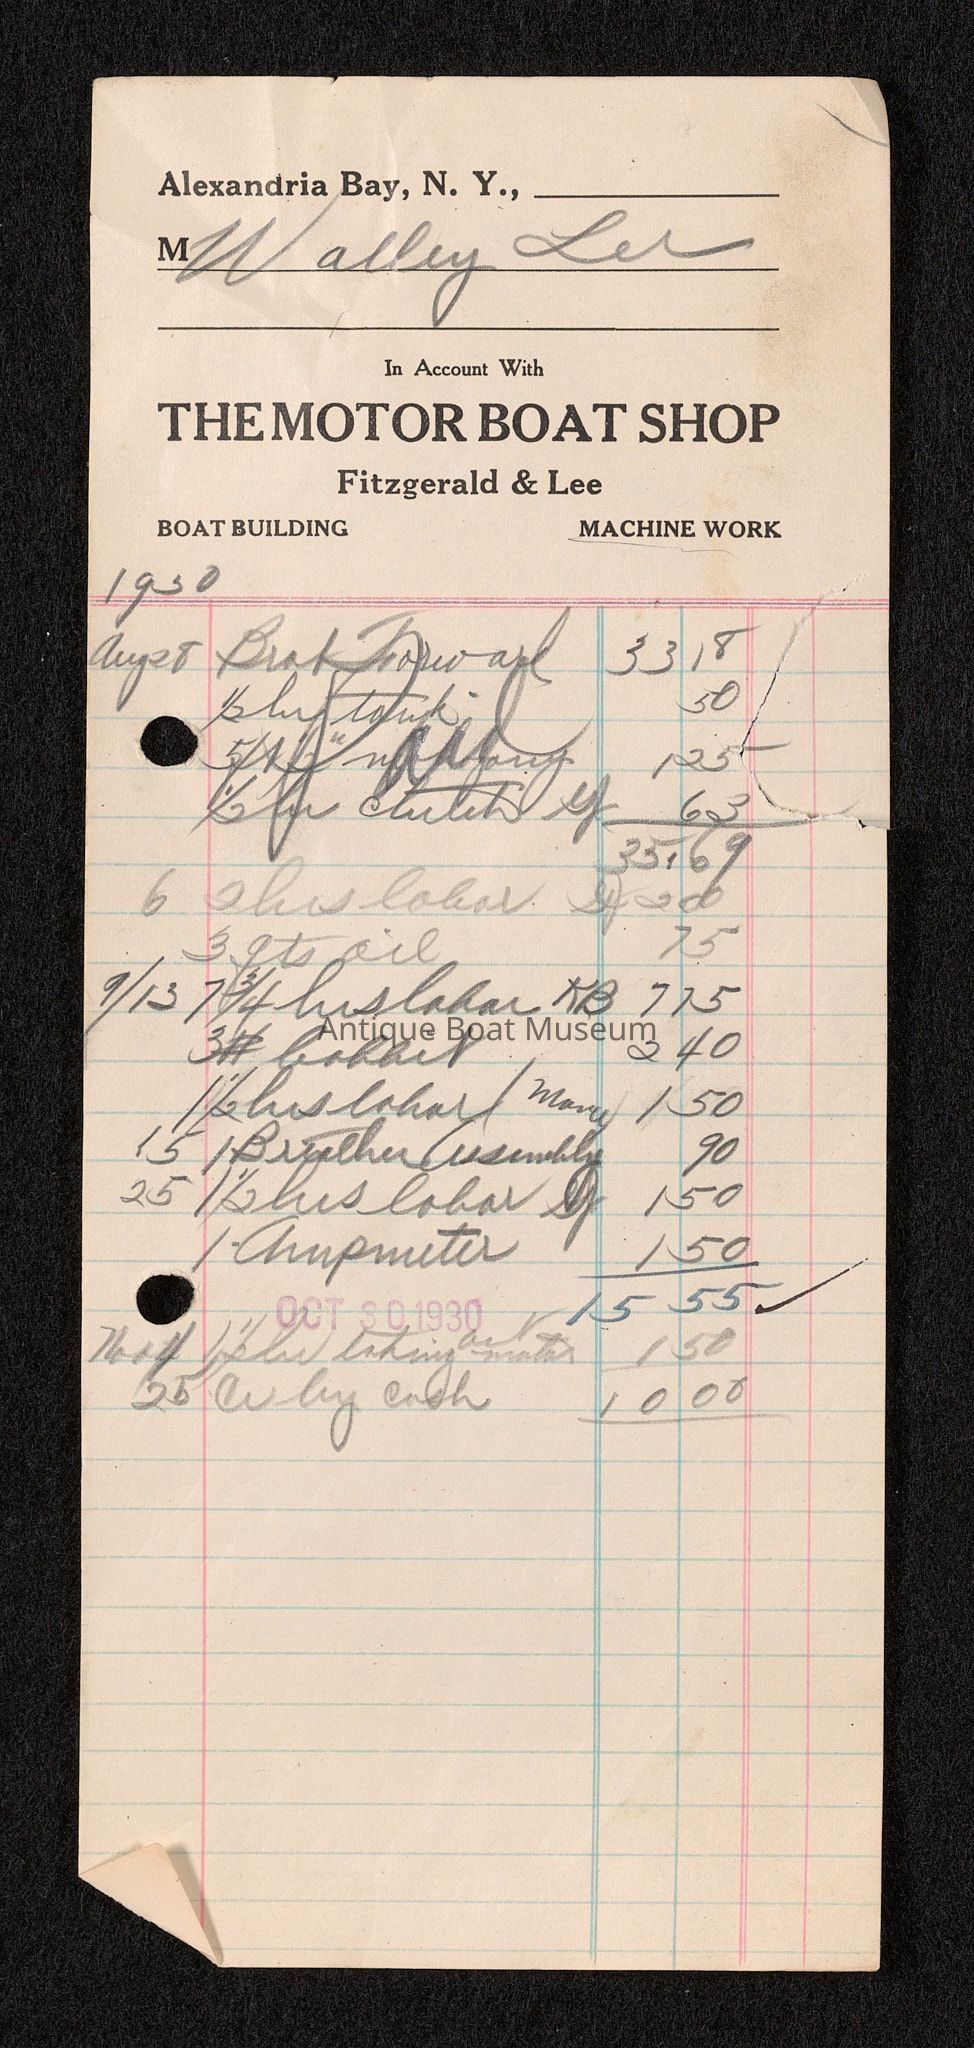 Alexandria Bay, N. Y.,
M Walley Lee
In Account With
THE MOTOR BOAT SHOP
Fitzgerald & Lee
BOAT BUILDING MACHINE WORK
1930
Brot Forward 33 18
½ hr tank 50
1 25
½ hr clutch 63
35.69
6 2 hrs labor 2 00
3 qts oil 75
9/13 7 3/4 hrs labor KB 7 75
Antique Boat Museum
3# babbit 2 40
1½ hrs labor 1 50
15 1 Breather Assembly 90
25 1½ hrs labor 1 50
1 Ampmeter 1 50
15 55 ✓
OCT 30 1930
Nov 4 1½ hr taking out motor 1 50
25 Cr by cash 10 00